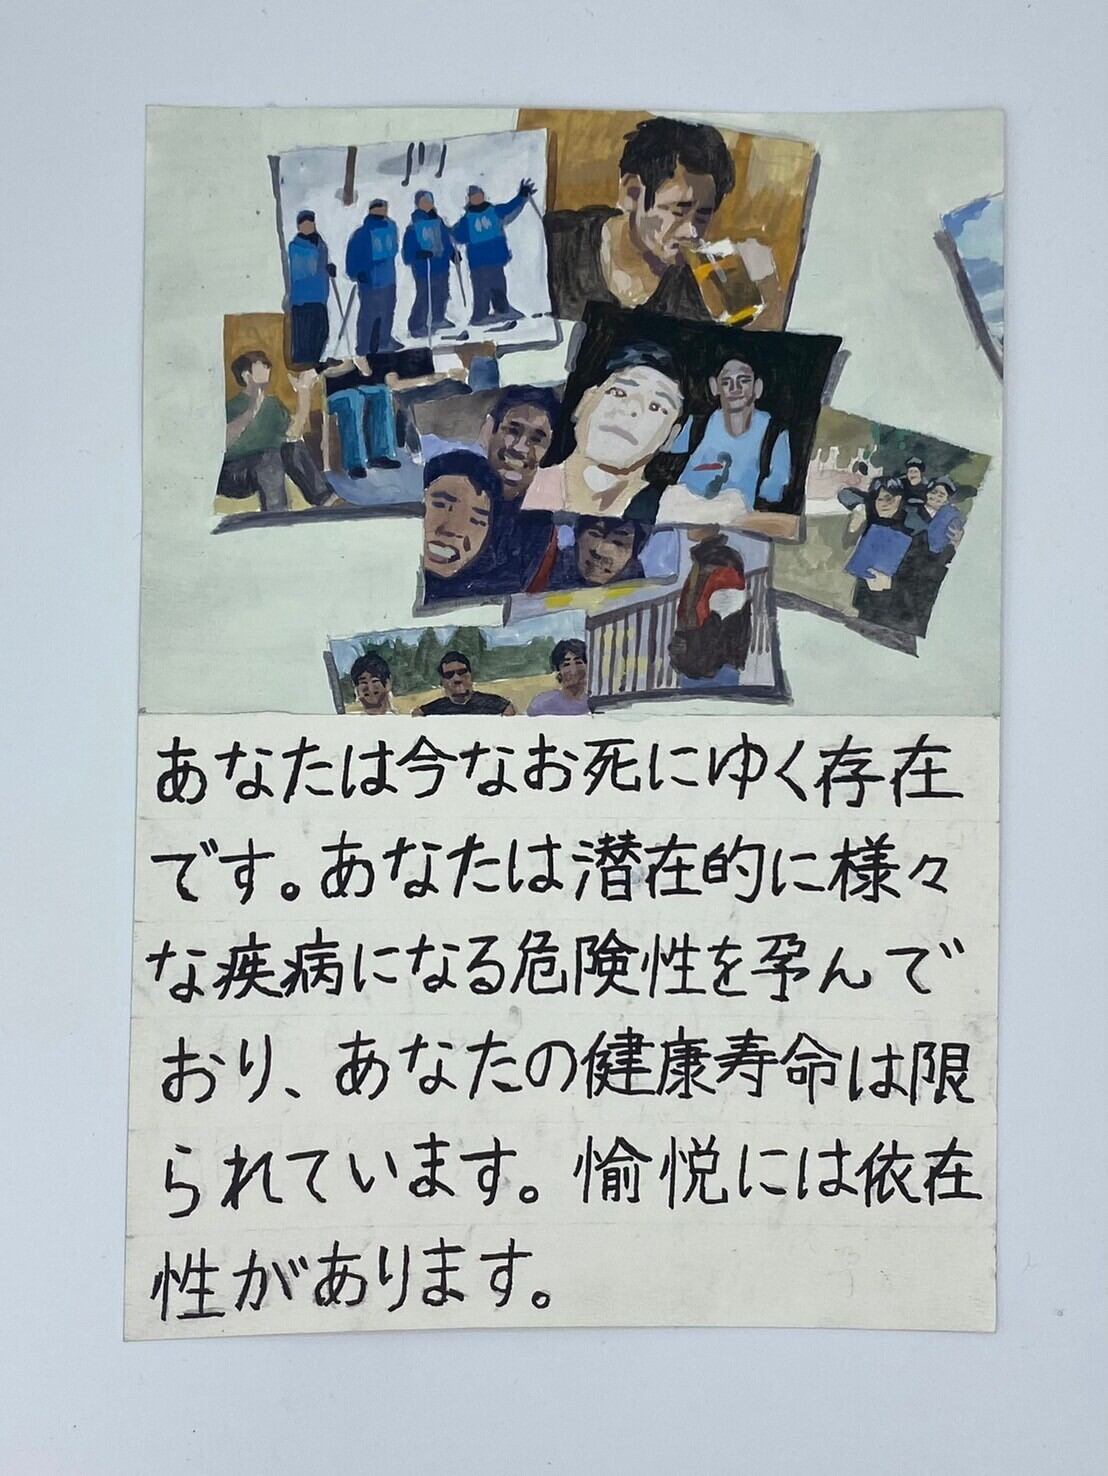 あなたは今なお死にゆく存在
です。あなたは潜在的に様々
な疾病になる危険性を孕んで
おり、あなたの健康寿命は限
られています。愉悦には依在
性があります。